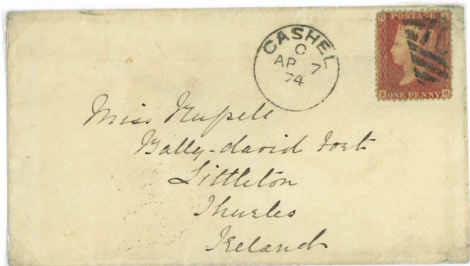 CASHEL
C
AP 7
74
POSTAGE
ONE PENNY
Miss
Bally-david Fort
Littleton
Thurles
Ireland